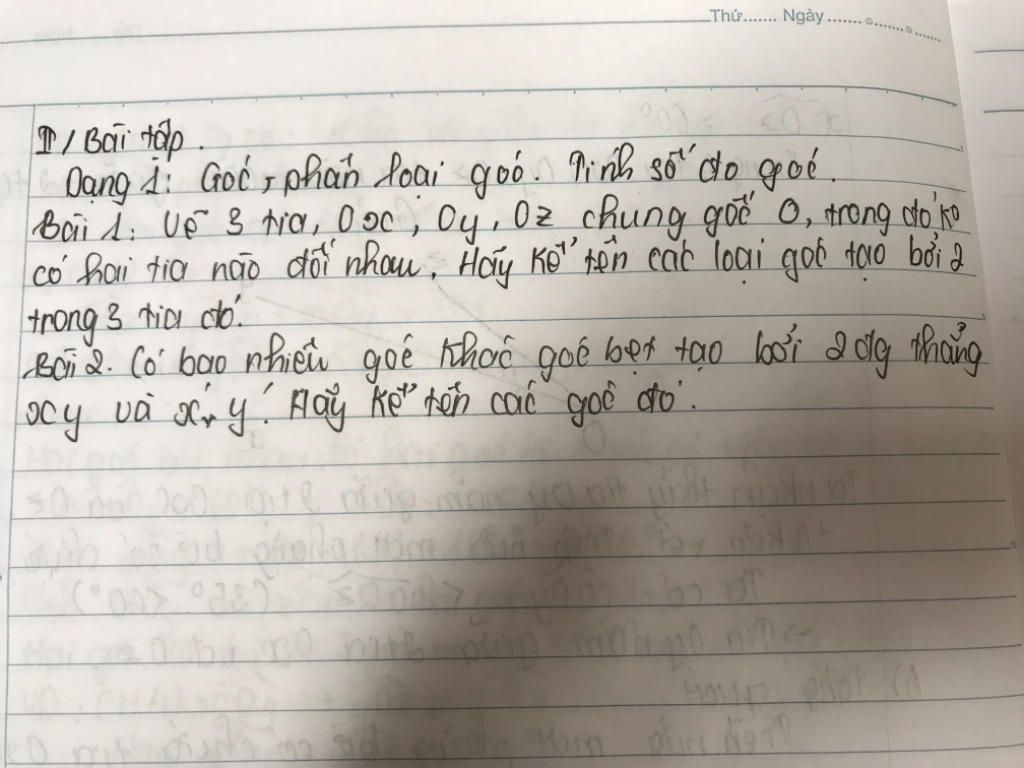 Thứ....... Ngày.............
II/ Bài tập.
Dạng 1: Góc, phân loại góc. Tính số đo góc.
Bài 1: Vẽ 3 tia, Ox, Oy, Oz chung gốc O, trong đó ko
có hai tia nào đối nhau. Hãy kể tên các loại góc tạo bởi 2
trong 3 tia đó.
Bài 2. Có bao nhiêu góc khác góc bẹt tạo bởi 2 đg thẳng
xy và x', y'. Hãy kể tên các góc đó.